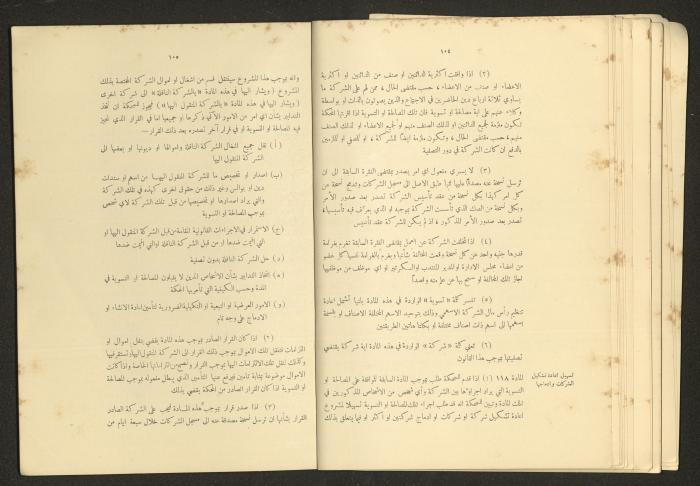 ١٠٤
(٢) اذا وافقت اكثرية الدائنين او صنف من الدائنين او اكثرية
الاعضاء او صنف من الاعضاء ، حسب مقتضى الحال ، ممن لهم على الشركة ما
يساوي ثلاثة ارباع دين الحاضرين في الاجتماع والذين يصوتون بالذات او بواسطة
وكلاء عنهم على اية مصالحة او تسوية فان تلك المصالحة او التسوية اذا اقرتها المحكمة
تكون ملزمة لجميع الدائنين او لذلك الصنف منهم او لجميع الاعضاء او لذلك الصنف
منهم ، حسب مقتضى الحال ، وتكون ملزمة ايضاً للشركة ، او للمصفي او للملزمين
بالدفع ان كانت الشركة في دور التصفية
(٣) لا يسري مفعول اي امر يصدر بمقتضى الفقرة السابقة الى ان
ترسل نسخة عنه مصدقاً عليها بانها مثيل الاصل الى مسجل الشركات وتدمج نسخة من
كل امر كهذا بكل نسخة من عقد تأسيس الشركة تصدر بعد صدور الأمر
وبكل نسخة من الصك الذي تأسست الشركة بموجبه او الذي يعرف فيه تأسيسها ،
تصدر بعد صدور الأمر المذكور ، اذا لم يكن للشركة عقد تأسيس
(٤) اذا تخلفت الشركة عن العمل بمقتضى الفقرة السابقة تغرم بغرامة
قدرها جنيه واحد عن كل نسخة وقعت المخالفة بشأنها ويغرم بالغرامة نفسها كل عضو
من اعضاء مجلس الادارة او المدير المنتدب او السكرتير او اي موظف من موظفيها
اجاز تلك المخالفة او سمح بها عن علم منه وقصداً
(٥) تفسر كلمة « تسوية » الواردة في هذه المادة بانها تشمل اعادة
تنظيم رأس مال الشركة الاسهمي وذلك بتوحيد الاسهم المختلفة الاصناف او بقسمة
اسهمها الى اسهم ذات اصناف مختلفة او بكلتا هاتين الطريقتين
(٦) تعني كلمة « شركة » الواردة في هذه المادة اية شركة يقتضي
تصفيتها بموجب هذا القانون
تسهيل اعادة تشكيل
الشركات وادماجها
المادة ١١٨ (١) اذا قدم للمحكمة طلب بموجب المادة السابقة للموافقة على المصالحة او
التسوية التي يراد اجراؤها بين الشركة وأي شخص من الاشخاص المذكورين في
تلك المادة وتبين للمحكمة انه قد طلب اجراء تلك المصالحة او التسوية تسهيلا لمشروع
اعادة تشكيل شركة او شركات او ادماج شركتين او اكثر او فيما يتعلق بذلك
١٠٥
وانه بموجب هذا المشروع سينتقل قسم من اشغال او اموال الشركة المختصة بذلك
المشروع ( ويشار اليها في هذه المادة « بالشركة الناقلة » الى شركة اخرى
( ويشار اليها في هذه المادة « بالشركة المنقول اليها » ) فيجوز للمحكمة ان تتخذ
التدابير بشأن اي امر من الامور الآتي ذكرها او جميعها اما في القرار الذي تجيز
فيه المصالحة او التسوية او في قرار آخر تصدره بعد ذلك القرار :ــ
( أ ) نقل جميع اشغال الشركة الناقلة واموالها او ديونها او بعضها الى
الشركة المنقول اليها
(ب) اصدار او تخصيص ما للشركة المنقول اليها من اسهم او سندات
دين او بوالس وغير ذلك من حقوق اخرى كهذه في تلك الشركة
والتي يراد اصدارها او تخصيصها من قبل تلك الشركة لاي شخص
بموجب المصالحة او التسوية
(ج) الاستمرار في الاجراءات القانونية المقامة من قبل الشركة المنقول اليها او
التي اقيمت ضدها او من قبل الشركة الناقلة او التي اقيمت ضدها
( د ) حل الشركة الناقلة بدون تصفية
(ه) اتخاذ التدابير بشأن الاشخاص الذين لا يقبلون المصالحة او التسوية في
المدة وحسب الكيفية التي تأمر بها المحكمة
( و ) الامور العرضية او التبعية او التكميلية الضرورية لتأمين اعادة الانشاء او
الادماج على وجه تام
(٢) اذا كان القرار الصادر بموجب هذه المادة يقضي بنقل اموال او
التزامات فتنقل تلك الاموال بموجب ذلك القرار الى الشركة المنقول اليها وتستقر فيها
وكذلك تنقل تلك الالتزامات اليها بموجب القرار وتصبح من التزاماتها الخاصة واذا كانت
الاموال موضوعة بمثابة تأمين فيرفع عنها التأمين الذي يبطل مفعوله بموجب المصالحة
او التسوية اذا كان القرار الصادر من المحكمة يقضي بذلك
(٣) اذا صدر قرار بموجب هذه المادة فيجب على الشركة الصادر
القرار بشأنها ان ترسل نسخة مصدقة عنه الى مسجل الشركات خلال سبعة ايام من